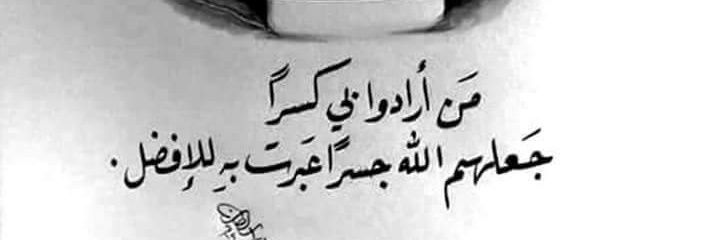 مَن أرادوا بي كسراً
جَعلهم الله جسراً عَبرت بهِ للإفضل.